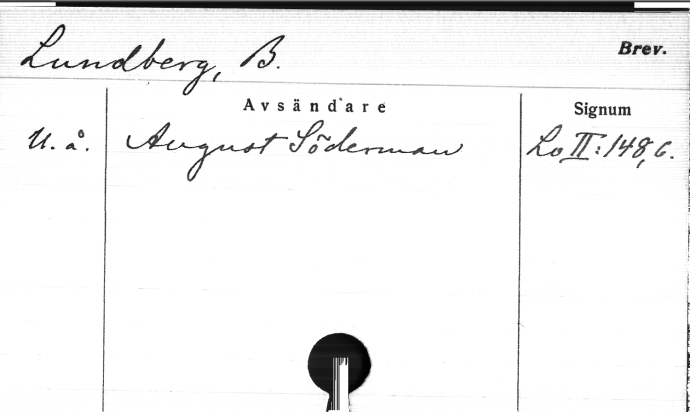 Lundberg, B.
Brev.
Avsändare
Signum
U. å. August Söderman Lo II:148,6.